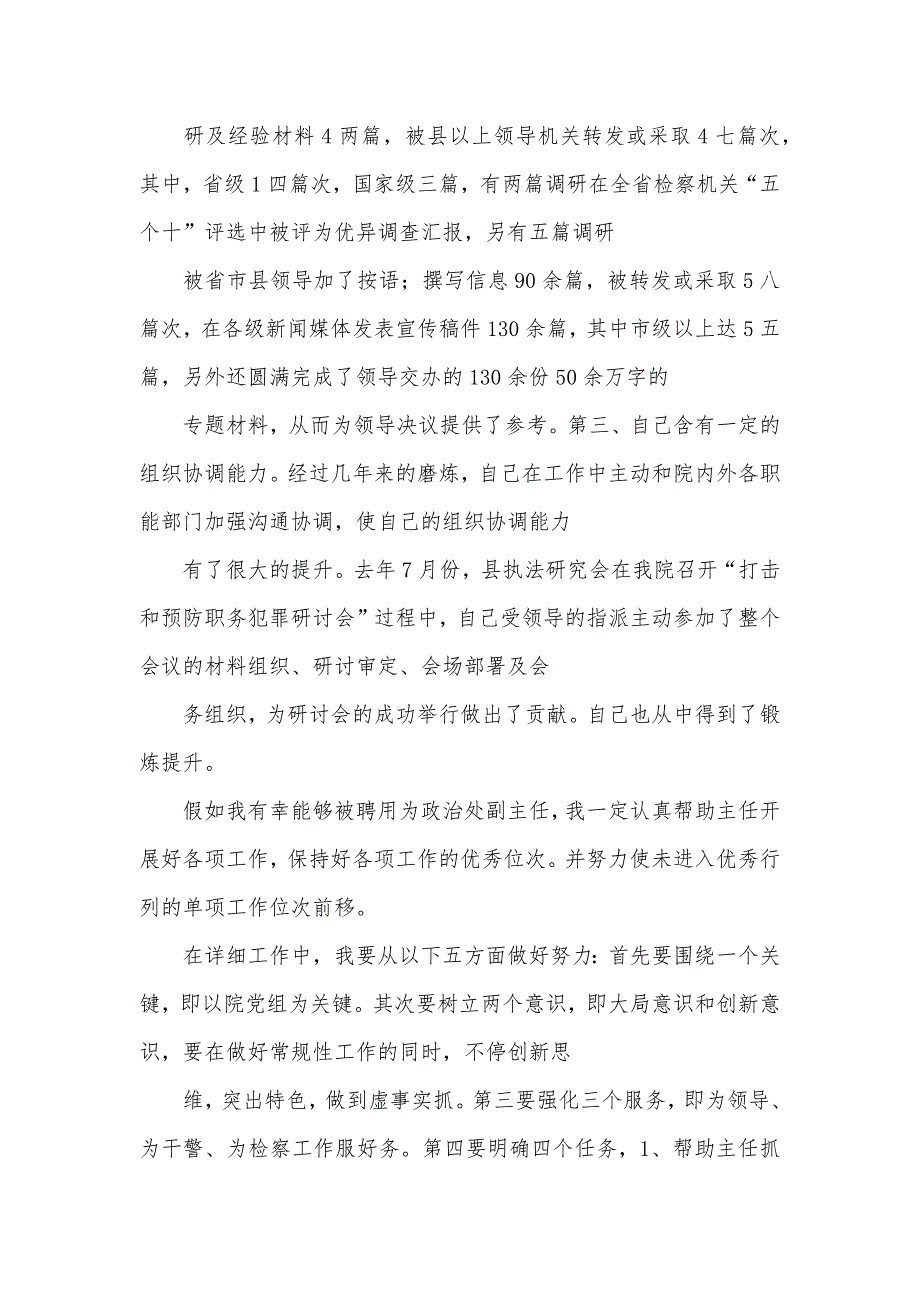 研及经验材料 4 两篇，被县以上领导机关转发或采取 4 七篇次，
其中，省级 1 四篇次，国家级三篇，有两篇调研在全省检察机关“五
个十”评选中被评为优异调查汇报，另有五篇调研
被省市县领导加了按语；撰写信息 90 余篇，被转发或采取 5 八
篇次，在各级新闻媒体发表宣传稿件 130 余篇，其中市级以上达 5 五
篇，另外还圆满完成了领导交办的 130 余份 50 余万字的
专题材料，从而为领导决议提供了参考。第三、自己含有一定的
组织协调能力。经过几年来的磨炼，自己在工作中主动和院内外各职
能部门加强沟通协调，使自己的组织协调能力
有了很大的提升。去年 7 月份，县执法研究会在我院召开“打击
和预防职务犯罪研讨会”过程中，自己受领导的指派主动参加了整个
会议的材料组织、研讨审定、会场部署及会
务组织，为研讨会的成功举行做出了贡献。自己也从中得到了锻
炼提升。
假如我有幸能够被聘用为政治处副主任，我一定认真帮助主任开
展好各项工作，保持好各项工作的优秀位次。并努力使未进入优秀行
列的单项工作位次前移。
在详细工作中，我要从以下五方面做好努力：首先要围绕一个关
键，即以院党组为关键。其次要树立两个意识，即大局意识和创新意
识，要在做好常规性工作的同时，不停创新思
维，突出特色，做到虚事实抓。第三要强化三个服务，即为领导、
为干警、为检察工作服好务。第四要明确四个任务，1、帮助主任抓